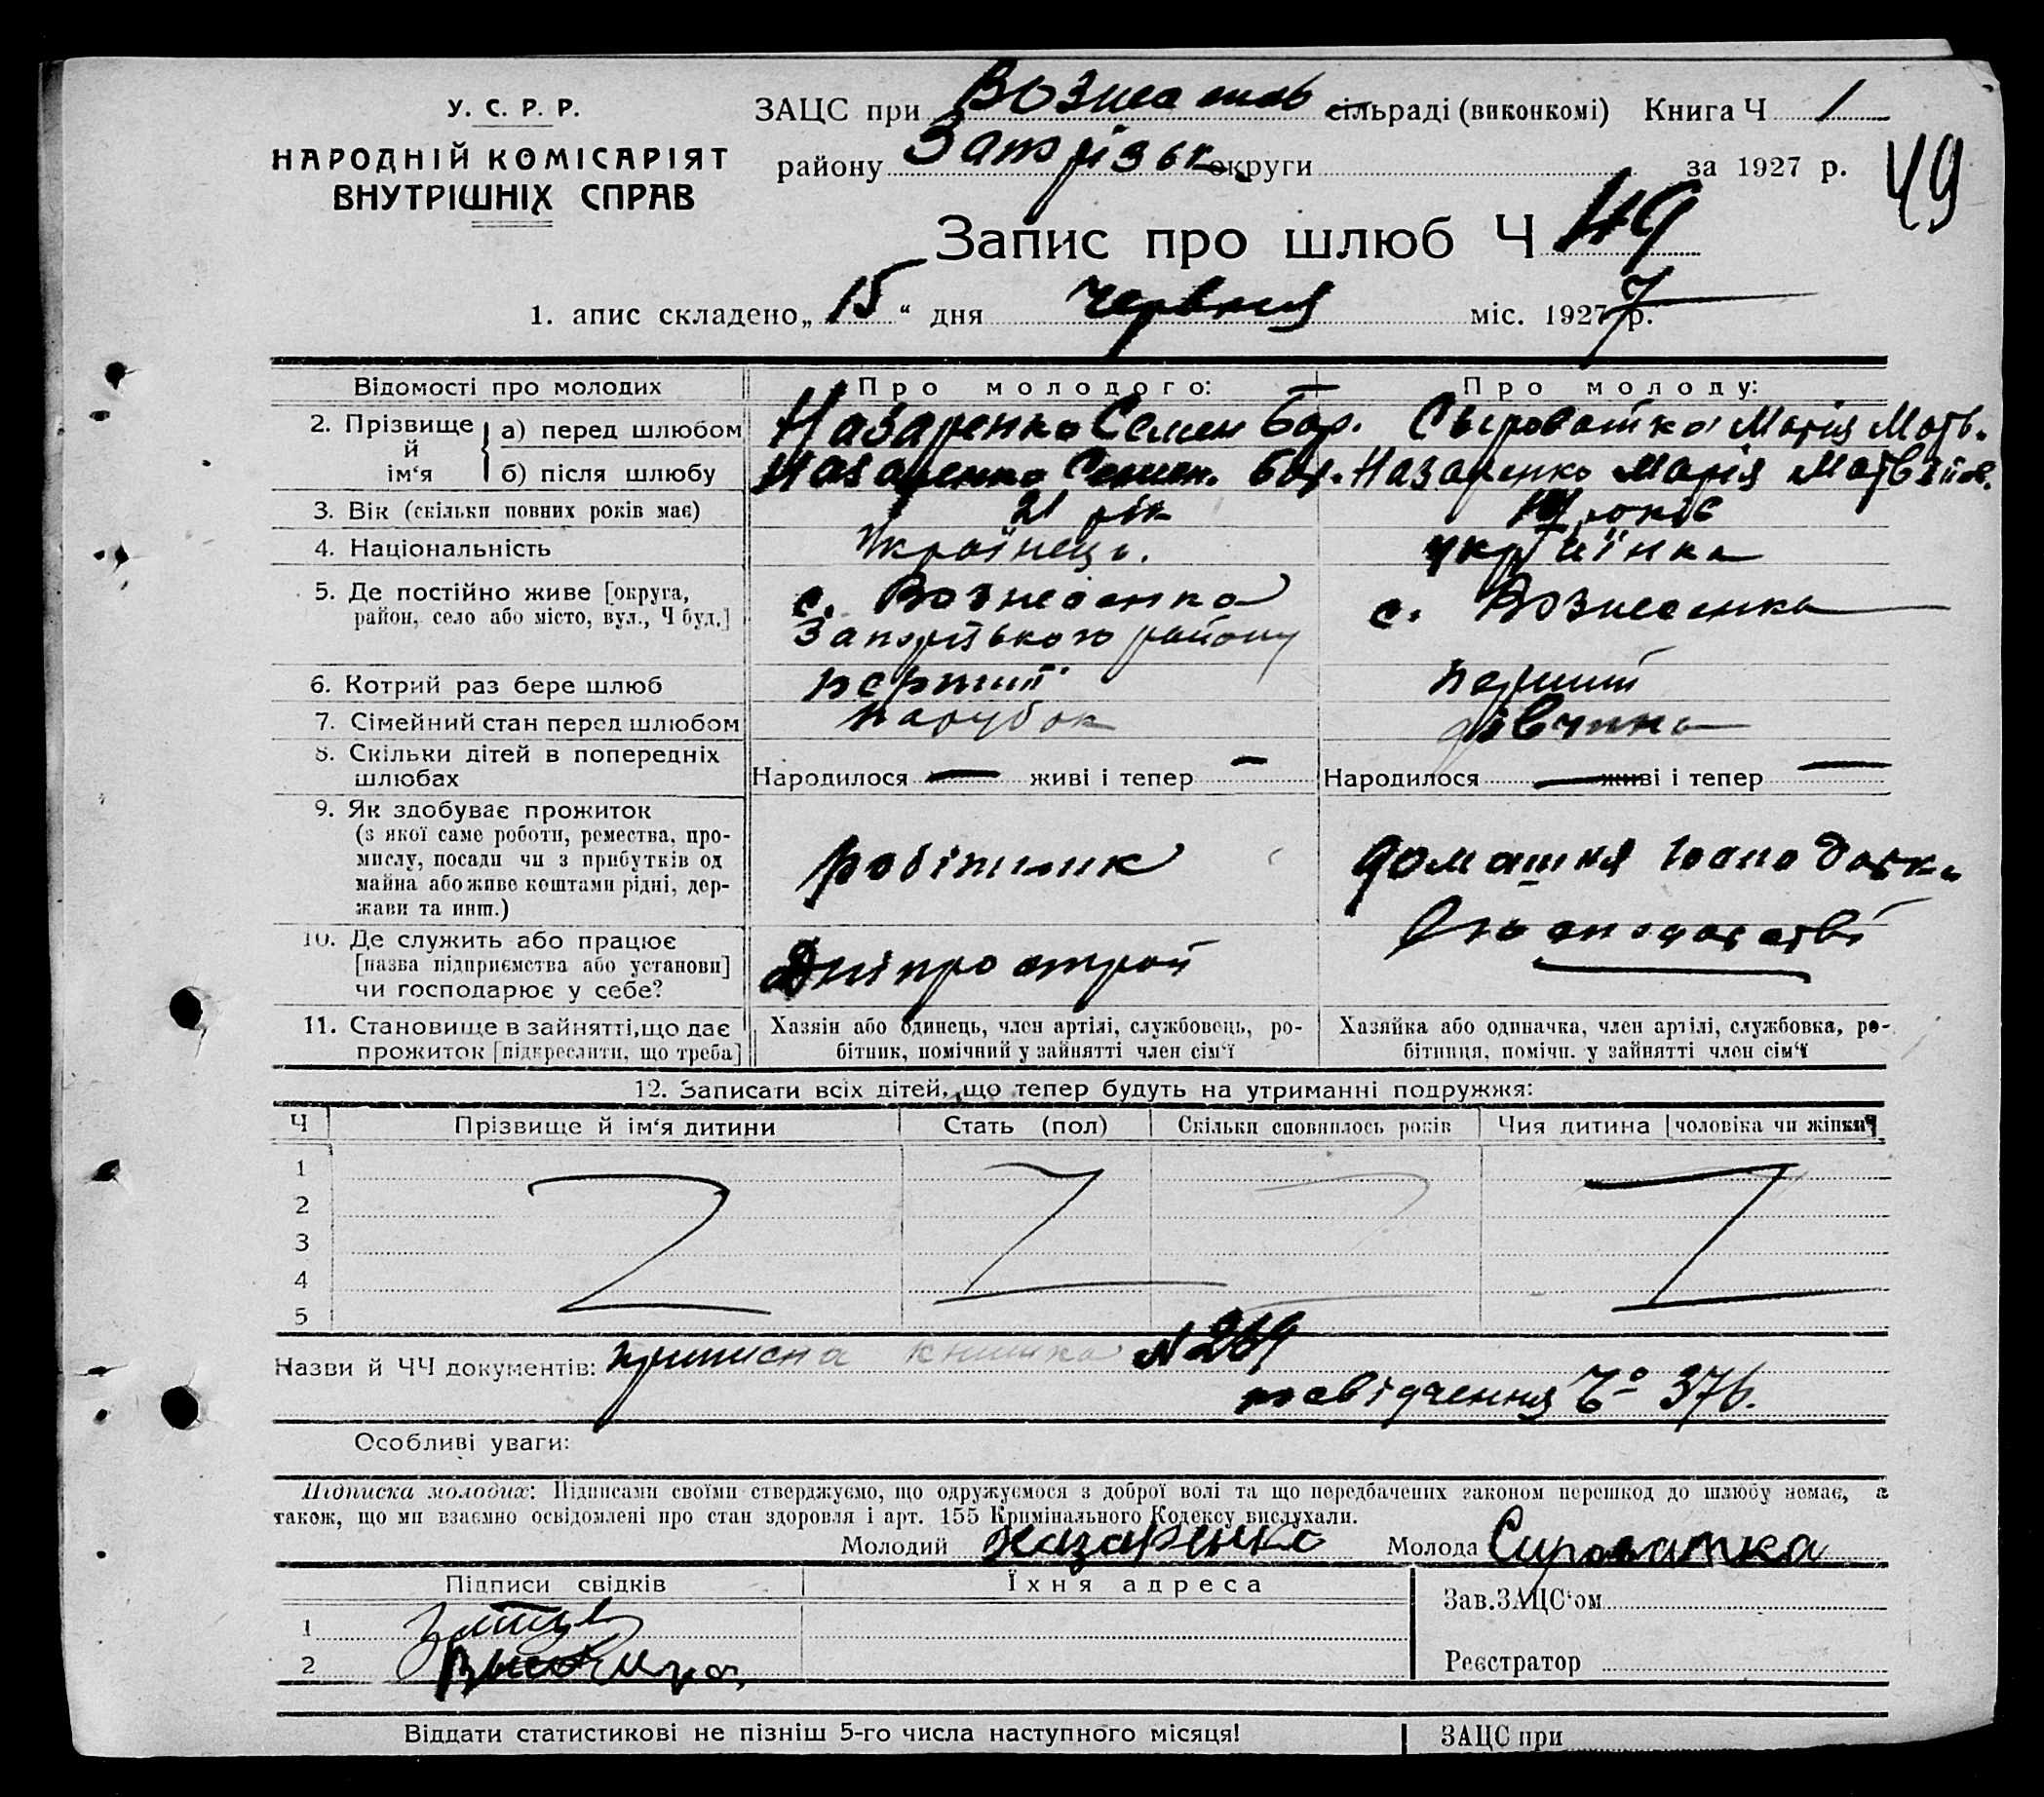 У. С. Р. Р.
НАРОДНІЙ КОМІСАРІЯТ
ВНУТРІШНІХ СПРАВ
ЗАЦС при сільраді (виконкомі) Книга Ч 1
району Запорізьк. округи за 1927 р.
49
Запис про шлюб Ч 49
1. апис складено „ 15 “ дня червня міс. 1927 7 р.
Відомості про молодих Про молодого: Про молоду:
2. Прізвище й ім‘я
а) перед шлюбом Назаренко Семен Бор. Сыроватка Марія Матв.
б) після шлюбу Назаренко Семен. Бор. Назаренко Марія Матвіїв.
3. Вік (скільки повних років має) 21 рік років
4. Національність Українець. українка
5. Де постійно живе [округа, район, село або місто, вул., Ч буд.] с. Вознесенка с. Вознесенка
Запорізького району
6. Котрий раз бере шлюб перший перший
7. Сімейний стан перед шлюбом парубок дівчина
8. Скільки дітей в попередніх шлюбах Народилося — живі і тепер — Народилося — живі і тепер —
9. Як здобуває прожиток
(з якої саме роботи, ремества, про-
мислу, посади чи з прибутків од
майна або живе коштами рідні, дер-
жави та инш.)
робітник домашня
10. Де служить або працює
[назва підприємства або установи]
чи господарює у себе?
Дніпрострой
11. Становище в зайнятті, що дає
прожиток [підкреслити, що треба]
Хазяін або одинець, член артілі, службовець, ро-
бітник, помічний у зайнятті член сім‘ї
Хазяйка або одиначка, член артілі, службовка, ро-
бітниця, помічн. у зайнятті член сім‘ї
12. Записати всіх дітей, що тепер будуть на утриманні подружжя:
Ч Прізвище й ім‘я дитини Стать (пол) Скільки сповнилось років Чия дитина [чоловіка чи жінки]
1
2
3
4
5
Назви й ЧЧ документів: приписна книжка №
посвідчення Ч° 376.
Особливі уваги:
Підписка молодих: Підписами своїми стверджуємо, що одружуємося з доброї волі та що передбачених законом перешкод до шлюбу немає, а
також, що ми взаємно освідомлені про стан здоровля і арт. 155 Кримінального Кодексу вислухали.
Молодий Назаренко Молода Сироватка
Підписи свідків Їхня адреса
Зав. ЗАЦС‘ом
1
2
Реєстратор
Віддати статистикові не пізніш 5-го числа наступного місяця!
ЗАЦС при